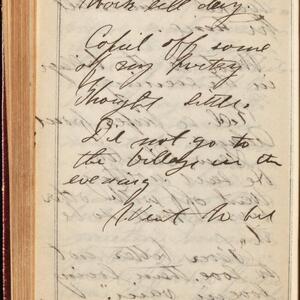 Work all day.
Copied off some
of my poetry
thought little.
Did not go to
the Village in the
evening
Went to bed